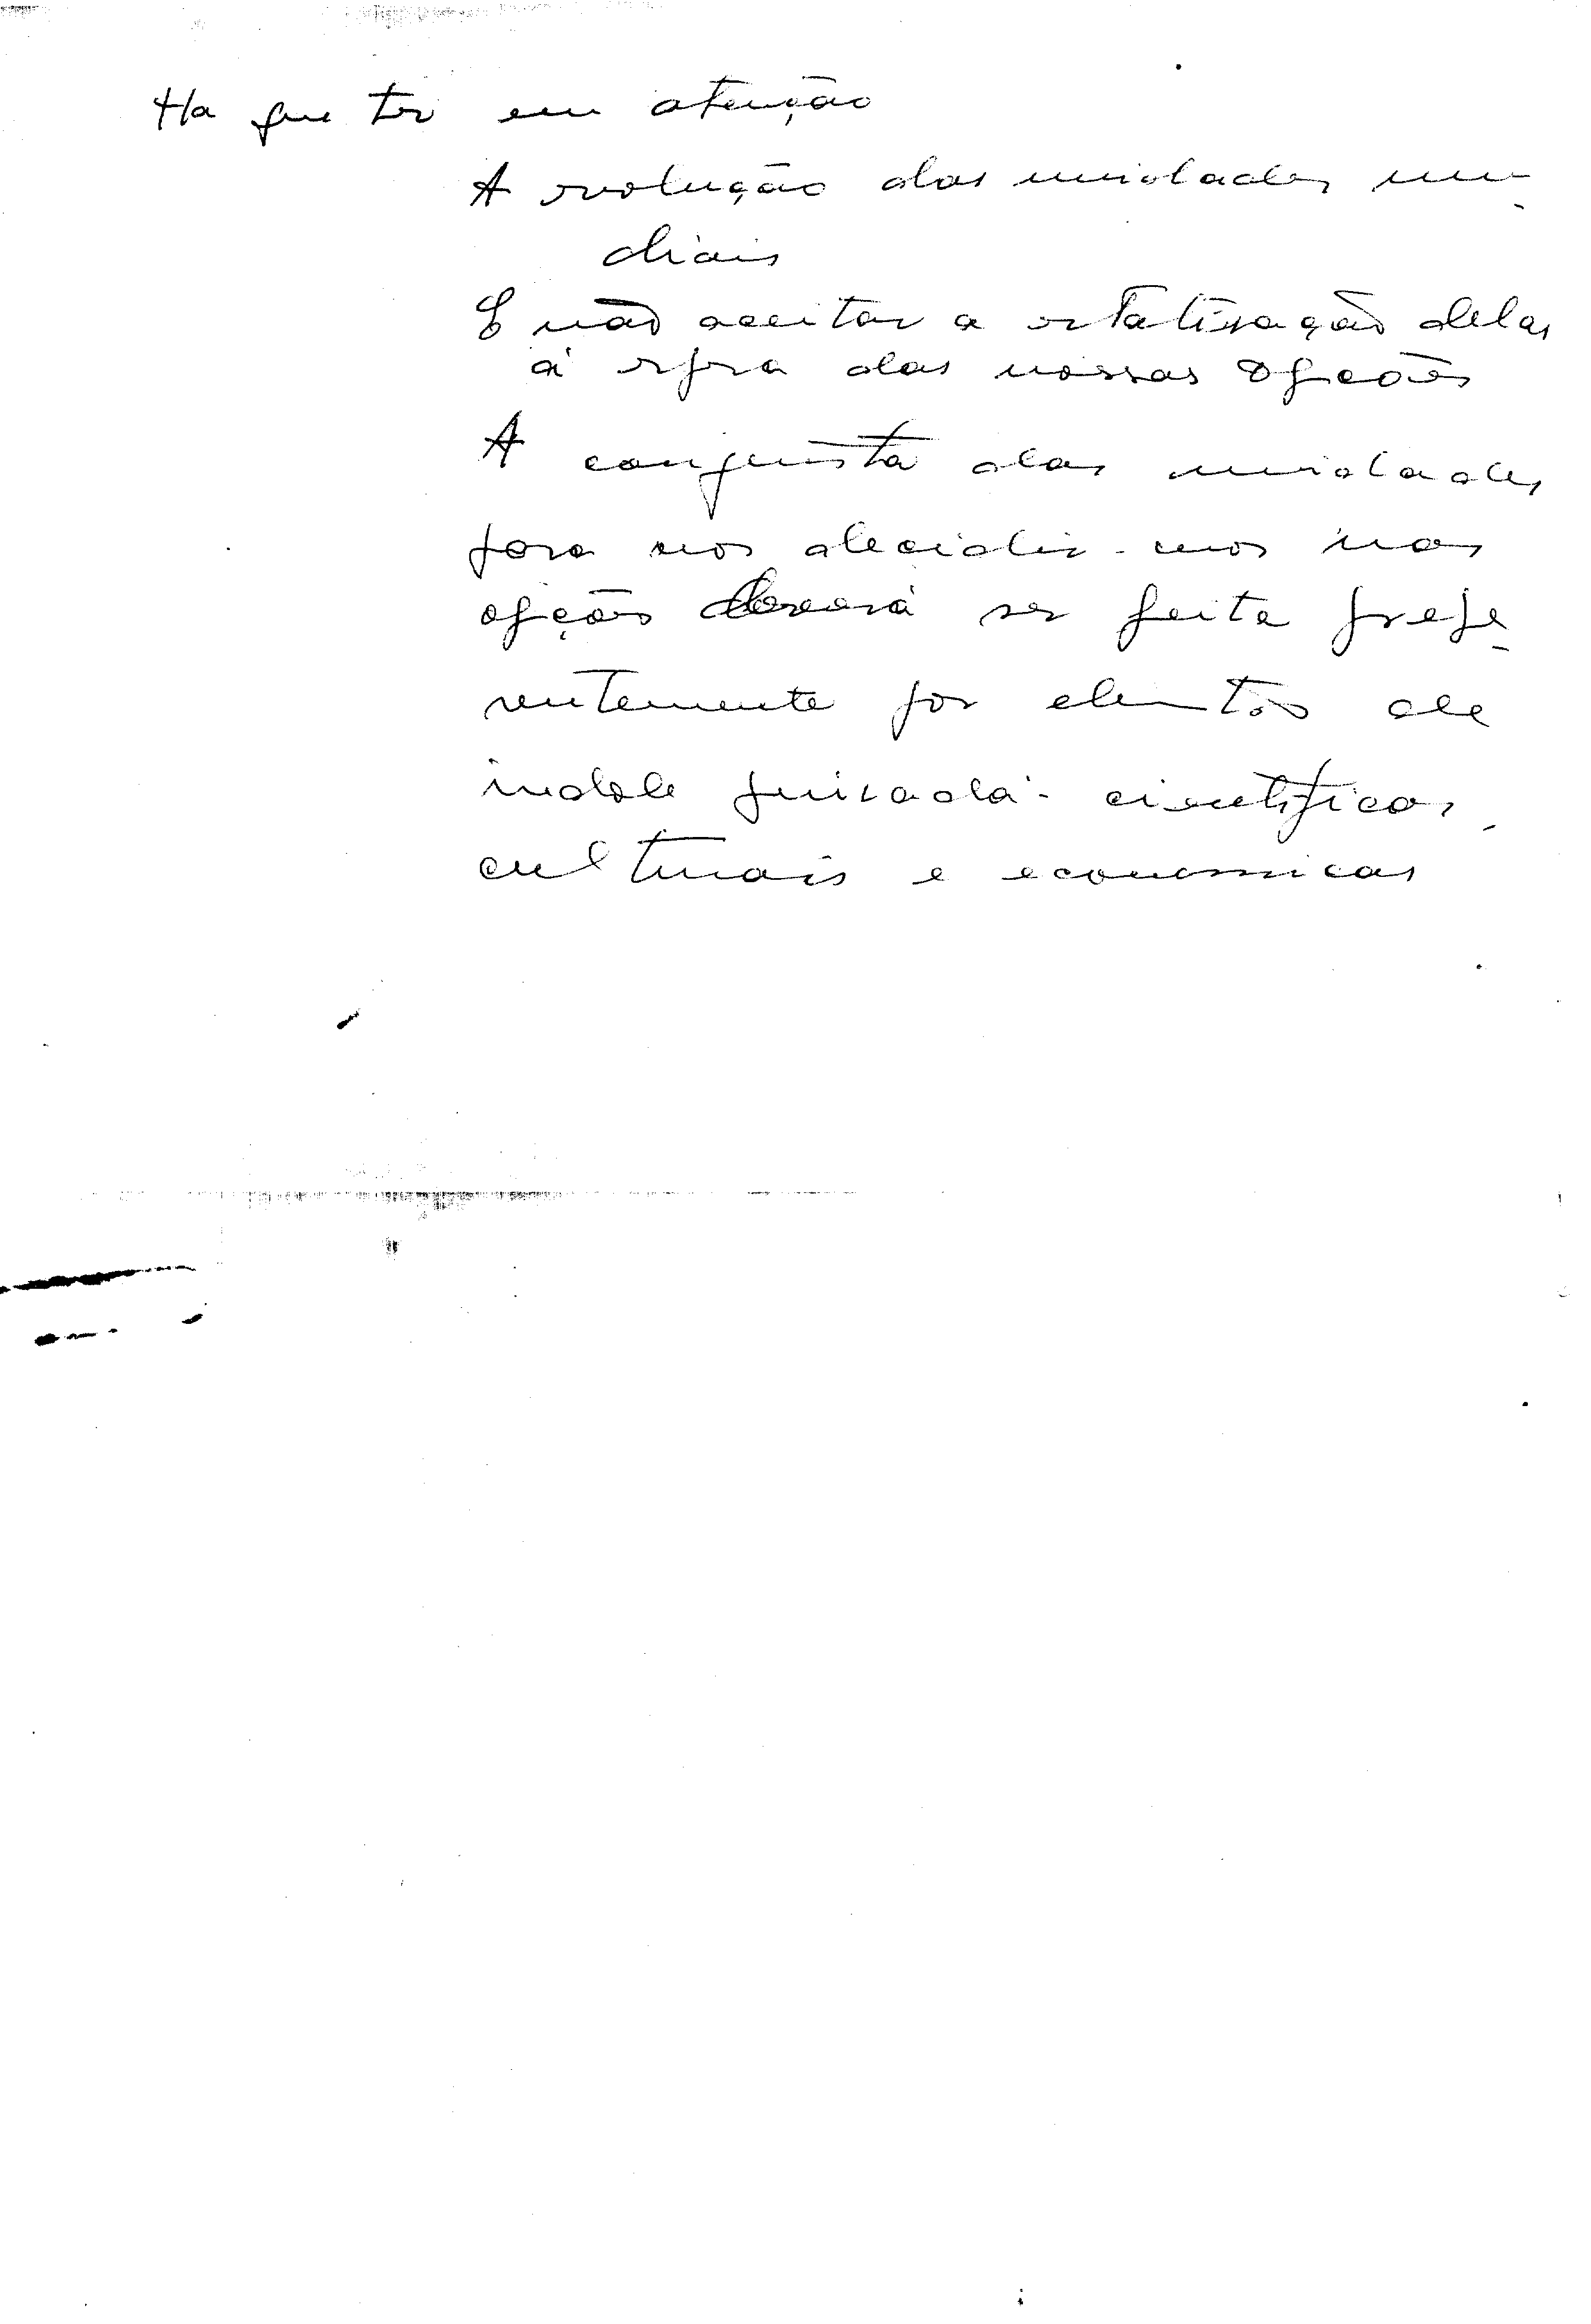 Ha que ter em atenção
A evolução das unidades mun-
diais
E não aceitar a estatização delas
à espera das nossas opções
A conquista das unidades
para nos decidir-mos nas
opções deverá ser feita prefe-
rentemente por elementos de
indole cientificas,
culturais e economicas